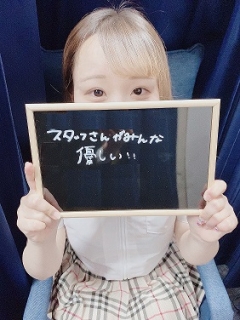 スタッフさんがみんな
優しい!!